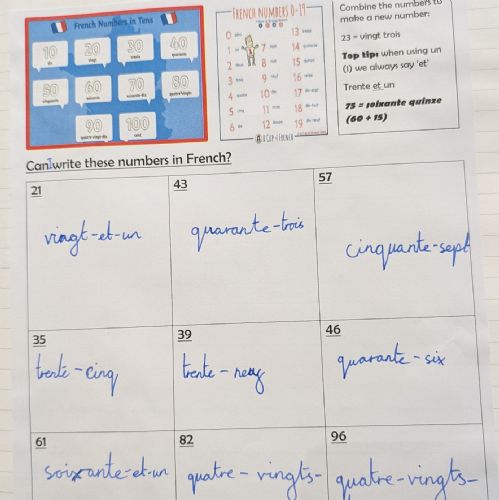 French Numbers in Tens
10
dix
20
vingt
30
trente
40
quarante
50
cinquante
60
soixante
70
soixante-dix
80
quatre-vingts
90
quatre-vingt-dix
100
cent
FRENCH NUMBERS 0-19
0 zéro
1 un
2 deux
3 trois
4 quatre
5 cinq
6 six
7 sept
8 huit
9 neuf
10 dix
11 onze
12 douze
13 treize
14 quatorze
15 quinze
16 seize
17 dix-sept
18 dix-huit
19 dix-neuf
Combine the numbers to
make a new number:
23 = vingt trois
Top tip: when using un
(1) we always say 'et'
Trente et un
75 = soixante quinze
(60 + 15)
Can I write these numbers in French?
21
vingt-et-un
43
quarante-trois
57
cinquante-sept
35
trente-cinq
39
trente-neuf
46
quarante-six
61
soixante-et-un
82
quatre-vingts-
96
quatre-vingts-